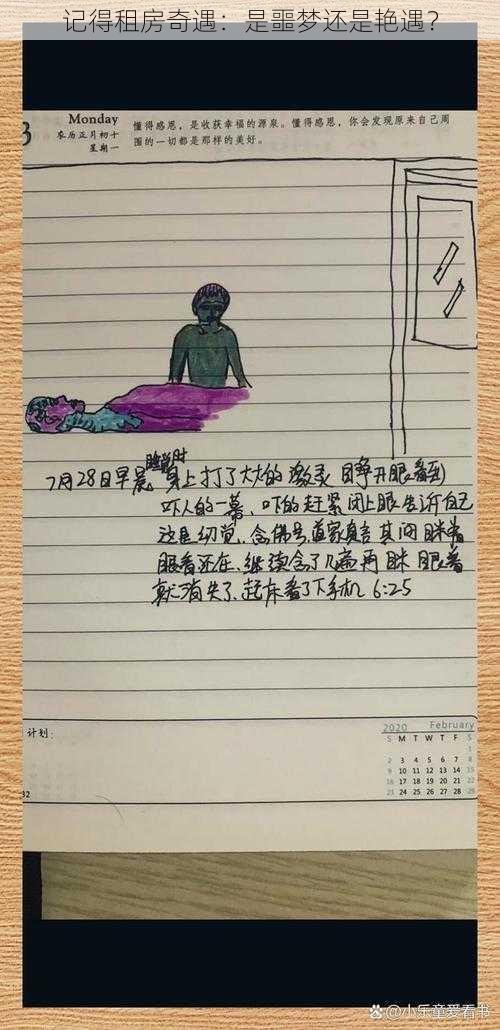 记得租房奇遇：是噩梦还是艳遇？
3
Monday
农历正月初十
星期一
懂得感恩，是收获幸福的源泉。懂得感恩，你会发现原来自己周
围的一切都是那样的美好。
睡觉时
7月28日早晨 身上打了大大的激灵 目睁开眼看到
吓人的一幕、吓的赶紧闭上眼告诉自己
这是幻觉、念佛号、道家真言 其间 眯着
眼看还在、继续念了几篇再 眯 眼看
就消失了、起床看了下手机 6:25
计划:
2020 February
S M T W T F S
1
2 3 4 5 6 7 8
9 10 11 12 13 14 15
16 17 18 19 20 21 22
23 24 25 26 27 28 29
32
@小乐童爱看书